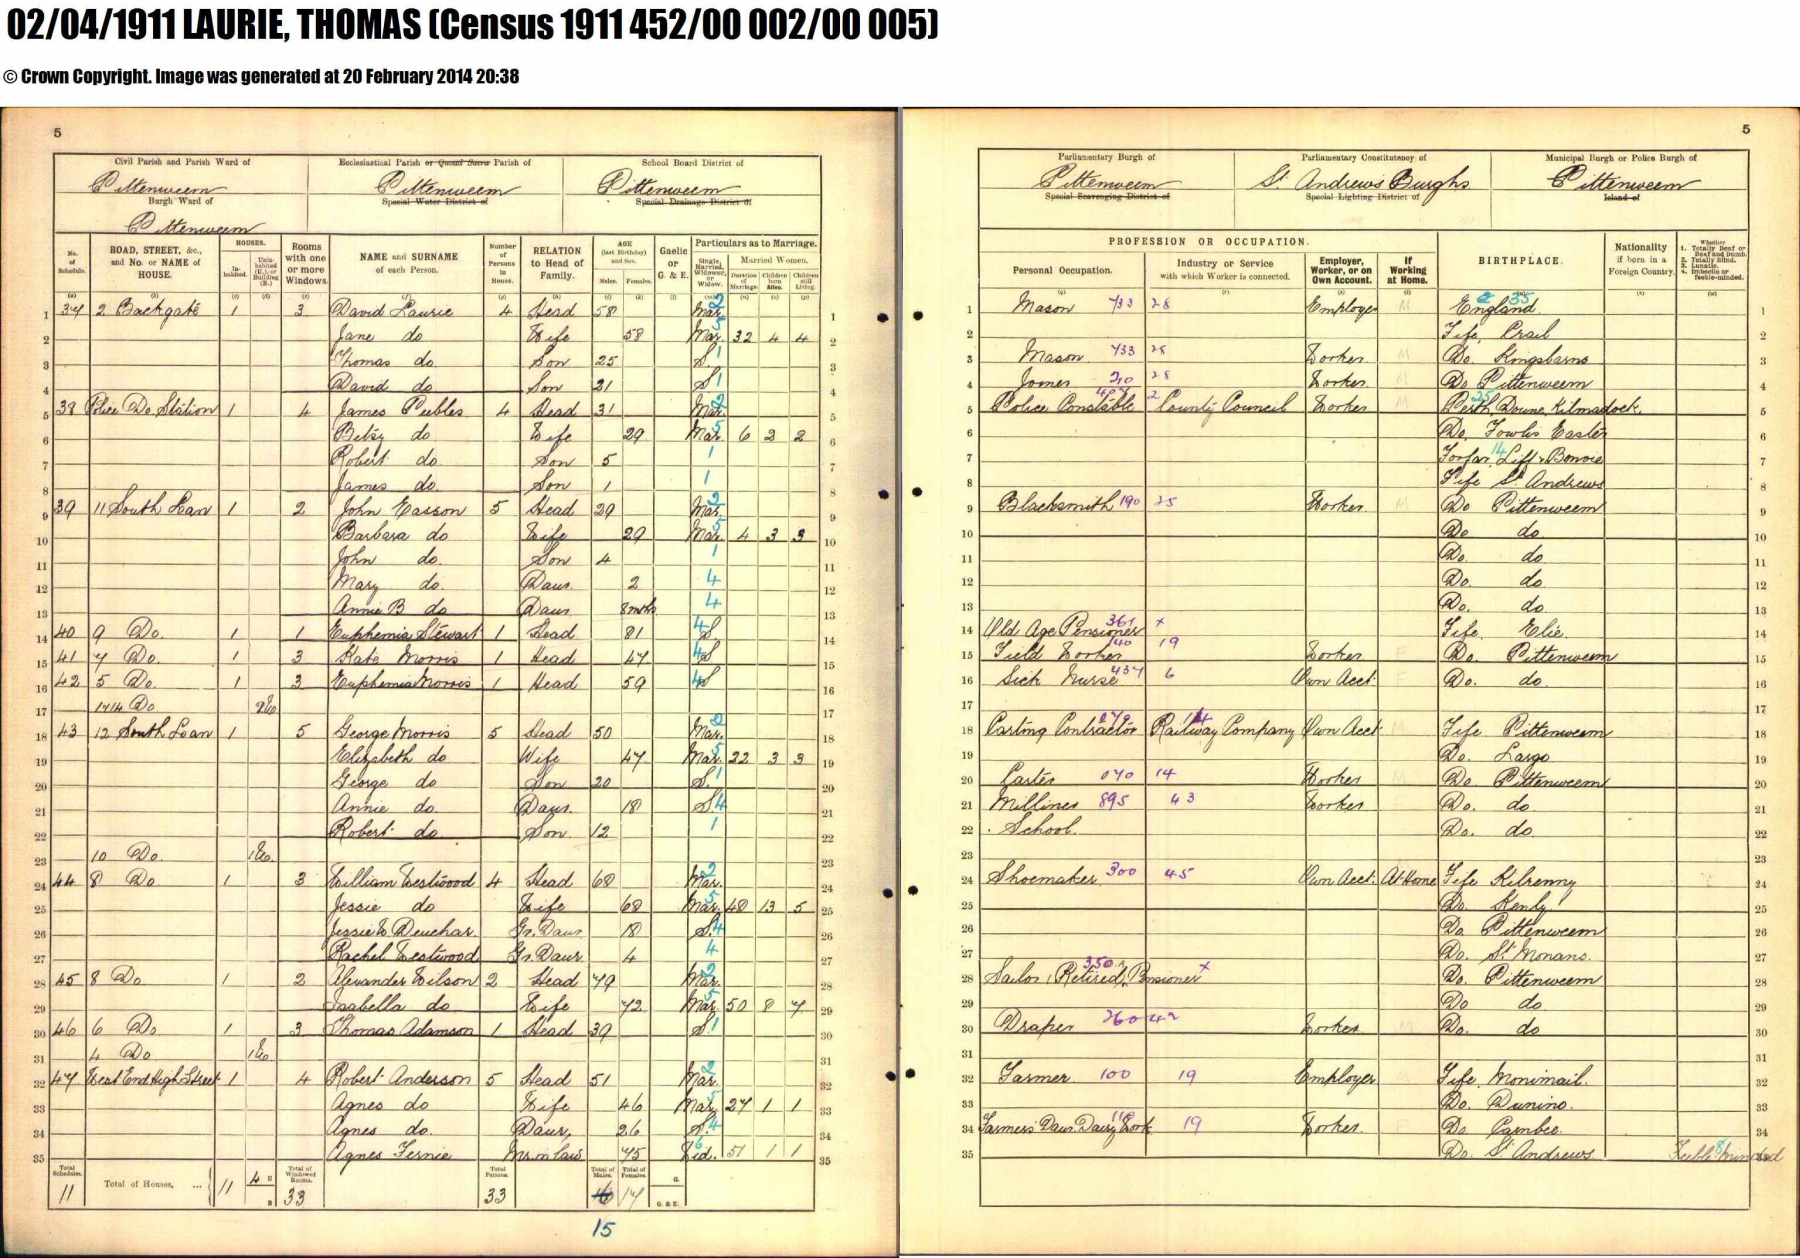 02/04/1911 LAURIE, THOMAS (Census 1911 452/00 002/00 005)
© Crown Copyright. Image was generated at 20 February 2014 20:38
5
Civil Parish and Parish Ward of
Ecclesiastical Parish or Quoad Sacra Parish of
School Board District of
Pittenweem
Pittenweem
Pittenweem
Burgh Ward of
Special Water District of
Special Drainage District of
Pittenweem
No. of Schedule.
ROAD, STREET, &c., and No. or NAME of HOUSE.
HOUSES.
Inhabited.
Uninhabited (U.), or Building (B.)
Rooms with one or more Windows.
NAME and SURNAME of each Person.
Number of Persons in House.
RELATION to Head of Family.
AGE (last Birthday) and Sex.
Males.
Females.
Gaelic or G. & E.
Particulars as to Marriage.
Single, Married, Widower, or Widow.
Married Women.
Duration of Marriage.
Children born Alive.
Children still Living.
1 37 2 Backgate 1 3 David Laurie 4 Head 58 Mar. 2 1
2 Jane do Wife 58 Mar. 5 32 4 4 2
3 Thomas do Son 25 S. 1 3
4 David do Son 21 S 1 4
5 38 Police Do. Station 1 4 James Peebles 4 Head 31 Mar. 2 5
6 Betsy do Wife 29 Mar. 5 6 2 2 6
7 Robert do. Son 5 1 7
8 James do. Son 1 1 8
9 39 11 South Loan 1 2 John Easson 5 Head 29 Mar. 2 9
10 Barbara do Wife 29 Mar. 5 4 3 3 10
11 John do. Son 4 1 11
12 Mary do. Daur. 2 4 12
13 Annie B do Daur 8 mths 4 13
14 40 9 Do. 1 1 Euphemia Stewart 1 Head 81 S. 4 14
15 41 7 Do. 1 3 Kate Morris 1 Head 47 S 4 15
16 42 5 Do. 1 3 Euphemia Morris 1 Head 59 S 4 16
17 17
18 43 12 South Loan 1 5 George Morris 5 Head 50 Mar. 2 18
19 Elizabeth do Wife 47 Mar. 5 22 3 3 19
20 George do Son 20 S. 1 20
21 Annie do. Daur. 18 S 4 21
22 Robert do Son 12 1 22
23 10 Do. 23
24 44 8 Do. 1 3 William Westwood 4 Head 68 Mar. 2 24
25 Jessie do Wife 68 Mar. 5 48 13 5 25
26 Jessie Deuchar. Gr. Daur 18 S. 4 26
27 Rachel Westwood Gr. Daur. 4 4 27
28 45 8 Do. 1 2 Alexander Wilson 2 Head 79 Mar. 2 28
29 Isabella do Wife 72 Mar. 5 50 8 7 29
30 46 6 Do 1 3 Thomas Adamson 1 Head 39 S 1 30
31 4 Do. 31
32 47 West End High Street 1 4 Robert Anderson 5 Head 51 Mar. 2 32
33 Agnes do Wife 46 Mar. 5 27 1 1 33
34 Agnes do. Daur. 26 S. 4 34
35 Agnes Fernie Mr. in law 75 Wid. 6 51 1 1 35
Total Schedules. 11
Total of Houses, ... 11 4 U B
Total of Windowed Rooms. 33
Total Persons. 33
Total of Males. 16
Total of Females. 17
G.
G. & E.
15
5
Parliamentary Burgh of
Parliamentary Constituency of
Municipal Burgh or Police Burgh of
Pittenweem
St. Andrews Burghs
Pittenweem
Special Scavenging District of
Special Lighting District of
Island of
PROFESSION OR OCCUPATION.
Personal Occupation.
Industry or Service with which Worker is connected.
Employer, Worker, or on Own Account.
If Working at Home.
BIRTHPLACE.
Nationality if born in a Foreign Country.
Whether
1. Totally Deaf or Deaf and Dumb.
2. Totally Blind.
3. Lunatic.
4. Imbecile or feeble-minded.
1 Mason 733 28 Employer M England 35 1
2 Fife, Crail 2
3 Mason 733 28 Worker M Do. Kingsbarns 3
4 Joiner 210 28 Worker M Do. Pittenweem 4
5 Police Constable 407 2 County Council Worker M Perth, Doune, Kilmadock. 25 5
6 Do. Fowlis Easter 6
7 Forfar, Liff & Benvie 14 7
8 Fife St. Andrews 8
9 Blacksmith 190 25 Worker M Do Pittenweem 9
10 Do do. 10
11 Do. do 11
12 Do. do 12
13 Do. do 13
14 Old Age Pensioner 361 x Fife. Elie. 14
15 Field Worker 140 19 Worker F Do. Pittenweem 15
16 Sick Nurse 437 6 Own Acct. F Do. do. 16
17 17
18 Carting Contractor 070 14 Railway Company Own Acct. M Fife Pittenweem 18
19 Do. Largo 19
20 Carter 070 14 Worker M Do Pittenweem 20
21 Milliner 895 43 Worker Do. do 21
22 School. Do. do 22
23 23
24 Shoemaker 300 45 Own Acct. At Home Fife Kilrenny 24
25 Do. 25
26 Do. Pittenweem 26
27 Do. St. Monans. 27
28 Sailor (Retired) Pensioner 350 x Do. Pittenweem 28
29 Do do. 29
30 Draper 260 42 Worker Do. do 30
31 31
32 Farmer 100 19 Employer M Fife. Monimail. 32
33 Do. Dunino. 33
34 Farmers Daur. Dairy Work 110 19 Worker. Do. Carnbee. 34
35 Do. St. Andrews Feeble Minded 8